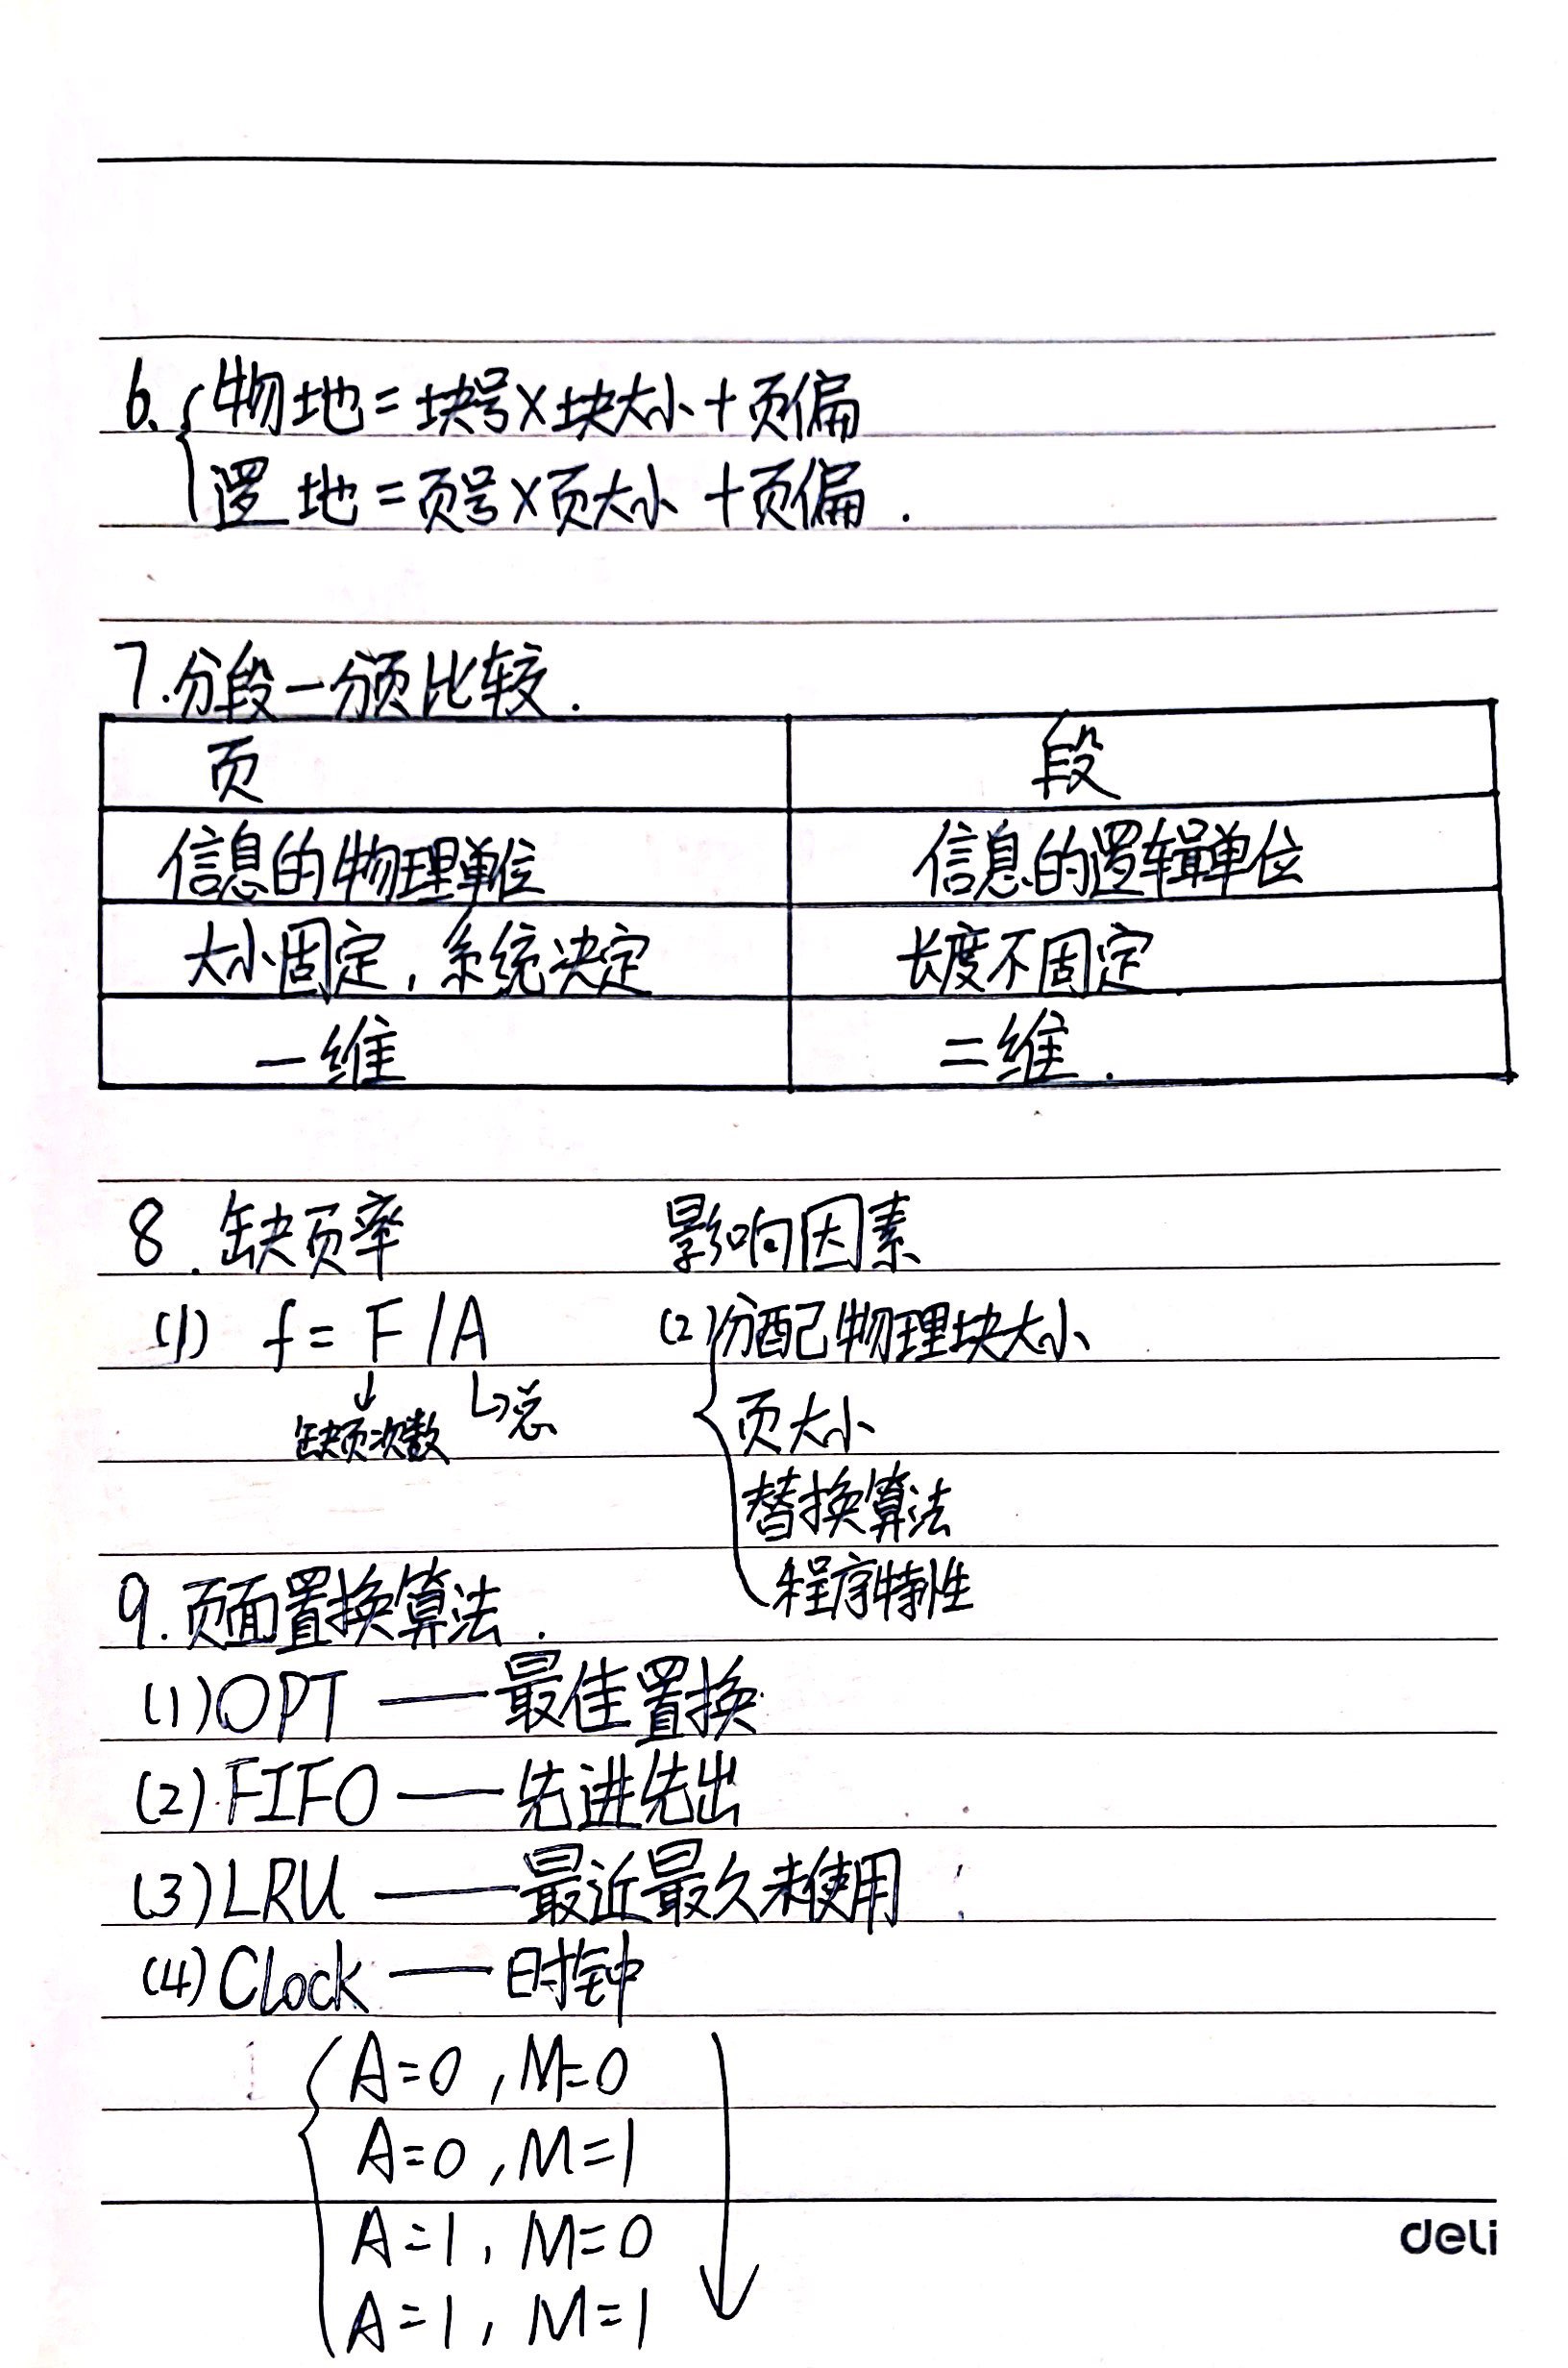 6. 物地=块号×块大小+页偏
逻 地=页号×页大小+页偏.
7.分段一分页比较.
页 段
信息的物理单位 信息的逻辑单位
大小固定,系统决定 长度不固定.
一维 二维.
8.缺页率 影响因素
(1) f=F/A (2)分配物理块大小
缺页次数 总 页大小
替换算法
程序特性
9.页面置换算法.
(1)OPT——最佳置换
(2)FIFO——先进先出
(3)LRU——最近最久未使用
(4)Clock——时钟
A=0,M=0
A=0,M=1
A=1,M=0
A=1,M=1
deli